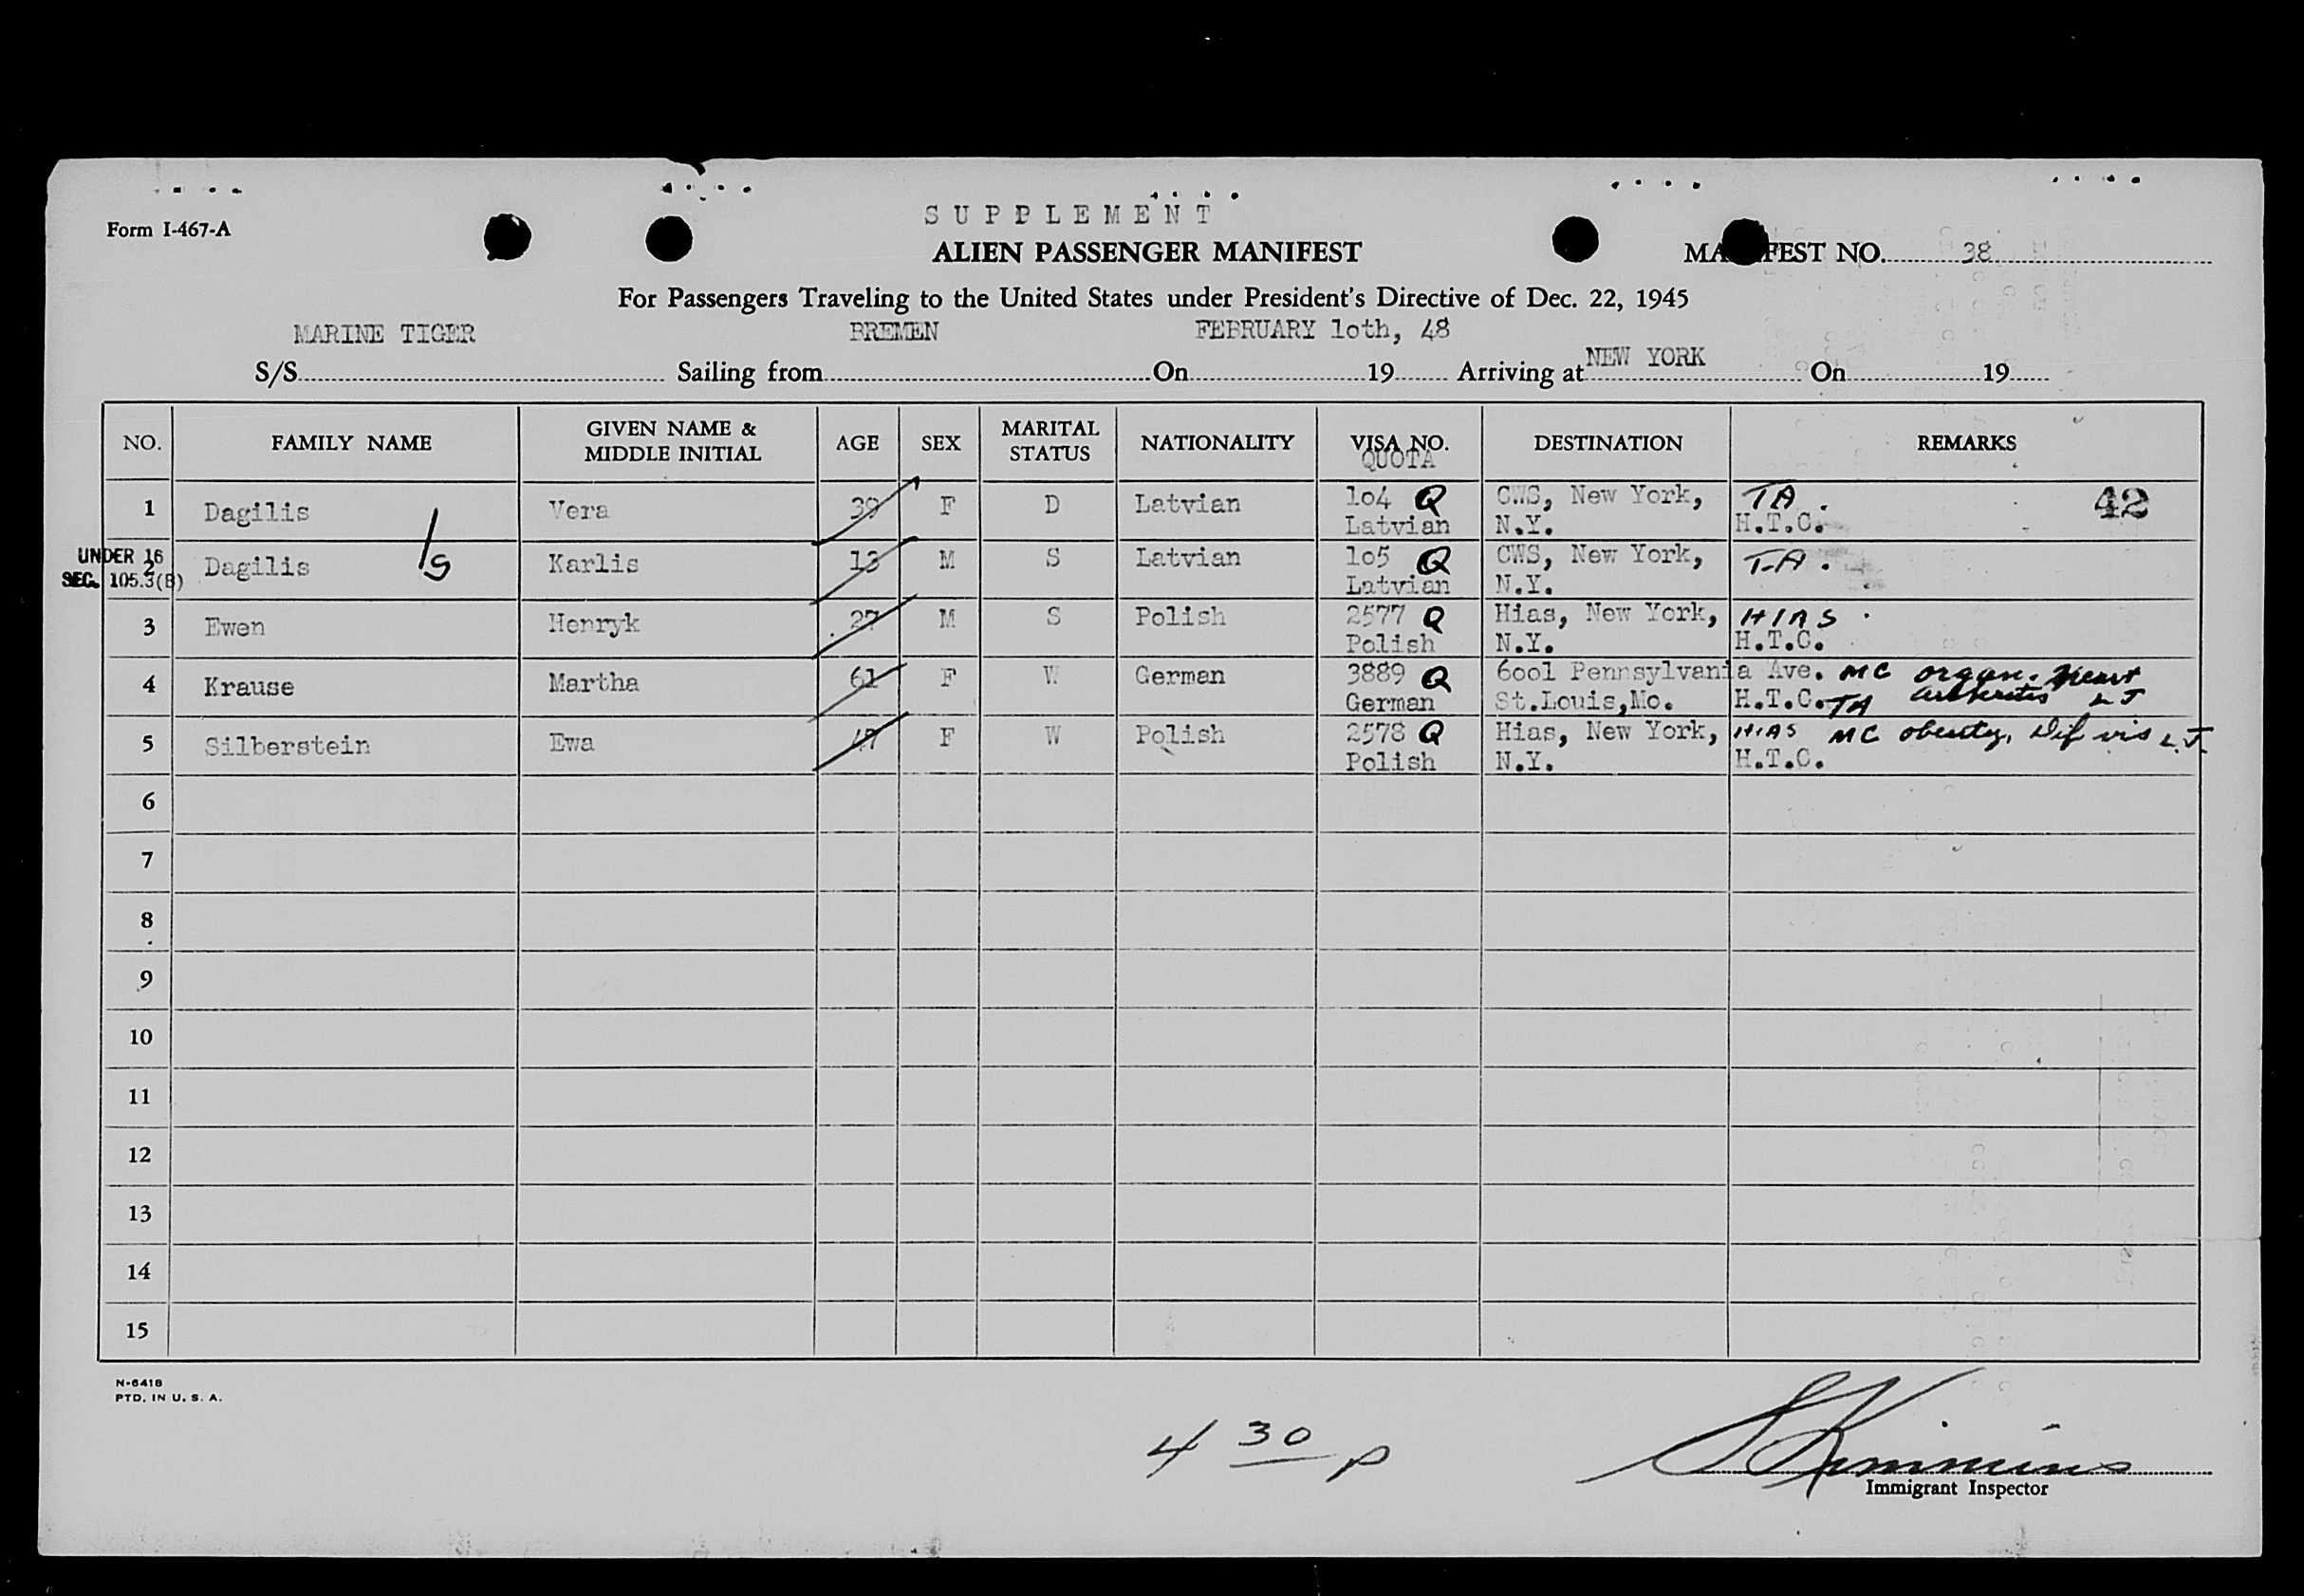 SUPPLEMENT
Form I-467-A
ALIEN PASSENGER MANIFEST
MA FEST NO. 38
For Passengers Traveling to the United States under President's Directive of Dec. 22, 1945
MARINE TIGER BREMEN FEBRUARY 1oth, 48
S/S Sailing from On 19 Arriving at NEW YORK On 19
NO. FAMILY NAME GIVEN NAME & MIDDLE INITIAL AGE SEX MARITAL STATUS NATIONALITY VISA NO. QUOTA DESTINATION REMARKS
1 Dagilis Vera 39 F D Latvian 1o4 Q CWS, New York, TA. 42
Latvian N.Y. H.T.C.
UNDER 16
SEC. 105.3(B)
2 Dagilis 1/s Karlis 13 M S Latvian 1o5 Q CWS, New York, T-A.
Latvian N.Y.
3 Ewen Henryk 27 M S Polish 2577 Q Hias, New York, HIAS
Polish N.Y. H.T.C.
4 Krause Martha 61 F W German 3889 Q 6oo1 Pennsylvania Ave. MC organ. heart
German St.Louis,Mo. H.T.C. TA arthritis LJ
5 Silberstein Ewa 47 F W Polish 2578 Q Hias, New York, HIAS MC obesity, Dif vis L.J.
Polish N.Y. H.T.C.
6
7
8
9
10
11
12
13
14
15
N-6418
PTD. IN U. S. A.
4 30 p
Immigrant Inspector